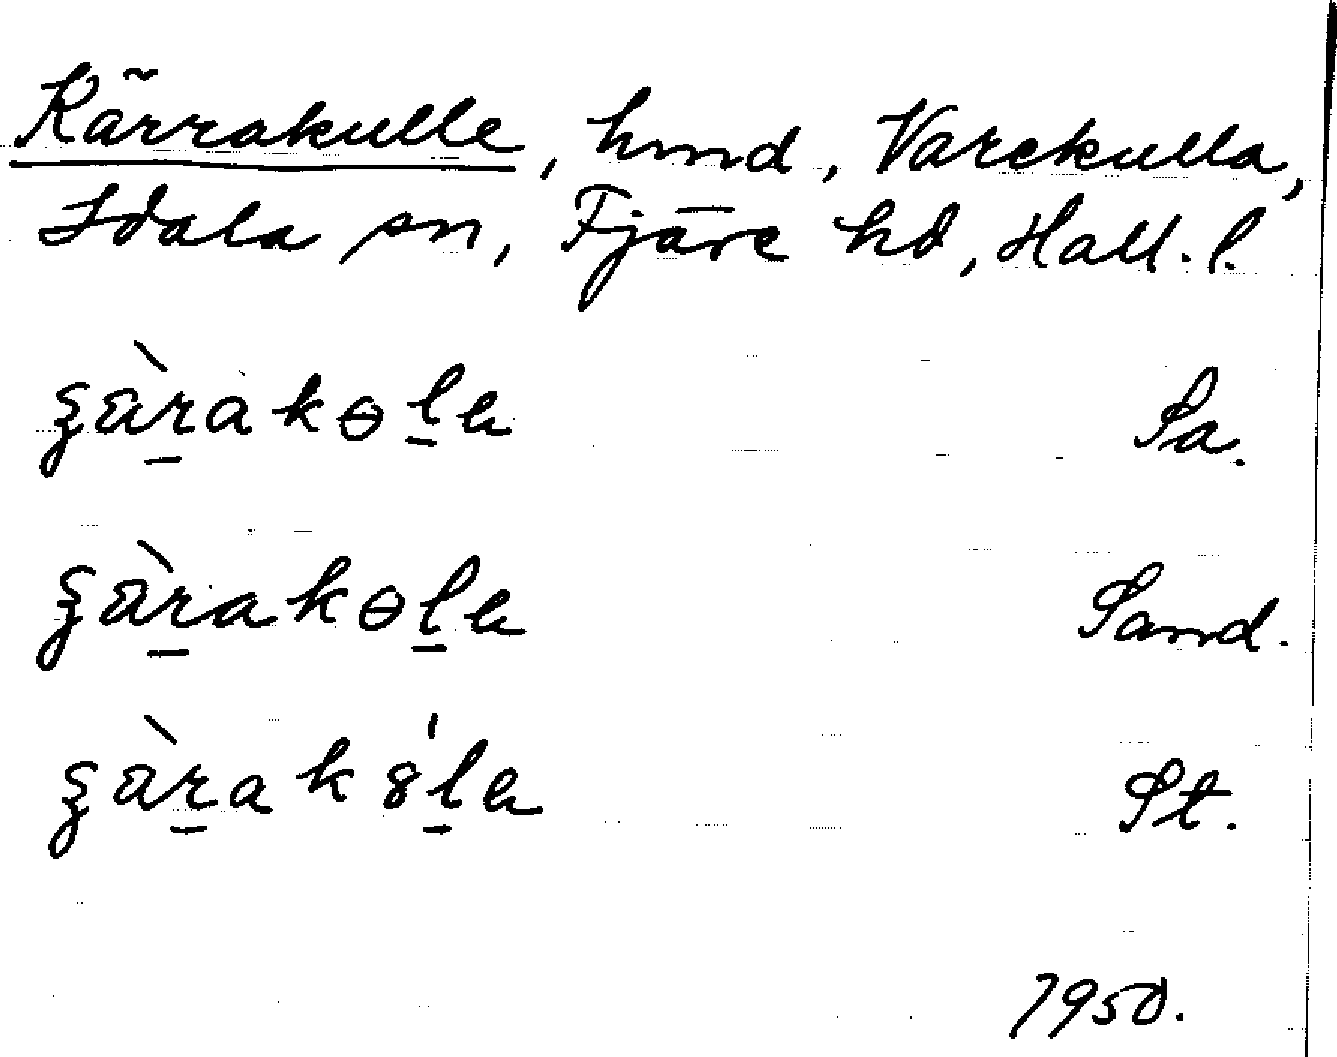 Kärrakulle, hmd, Varekulla,
Idala sn, Fjäre hd, Hall. l.
Sa.
Sand.
St.
1950.